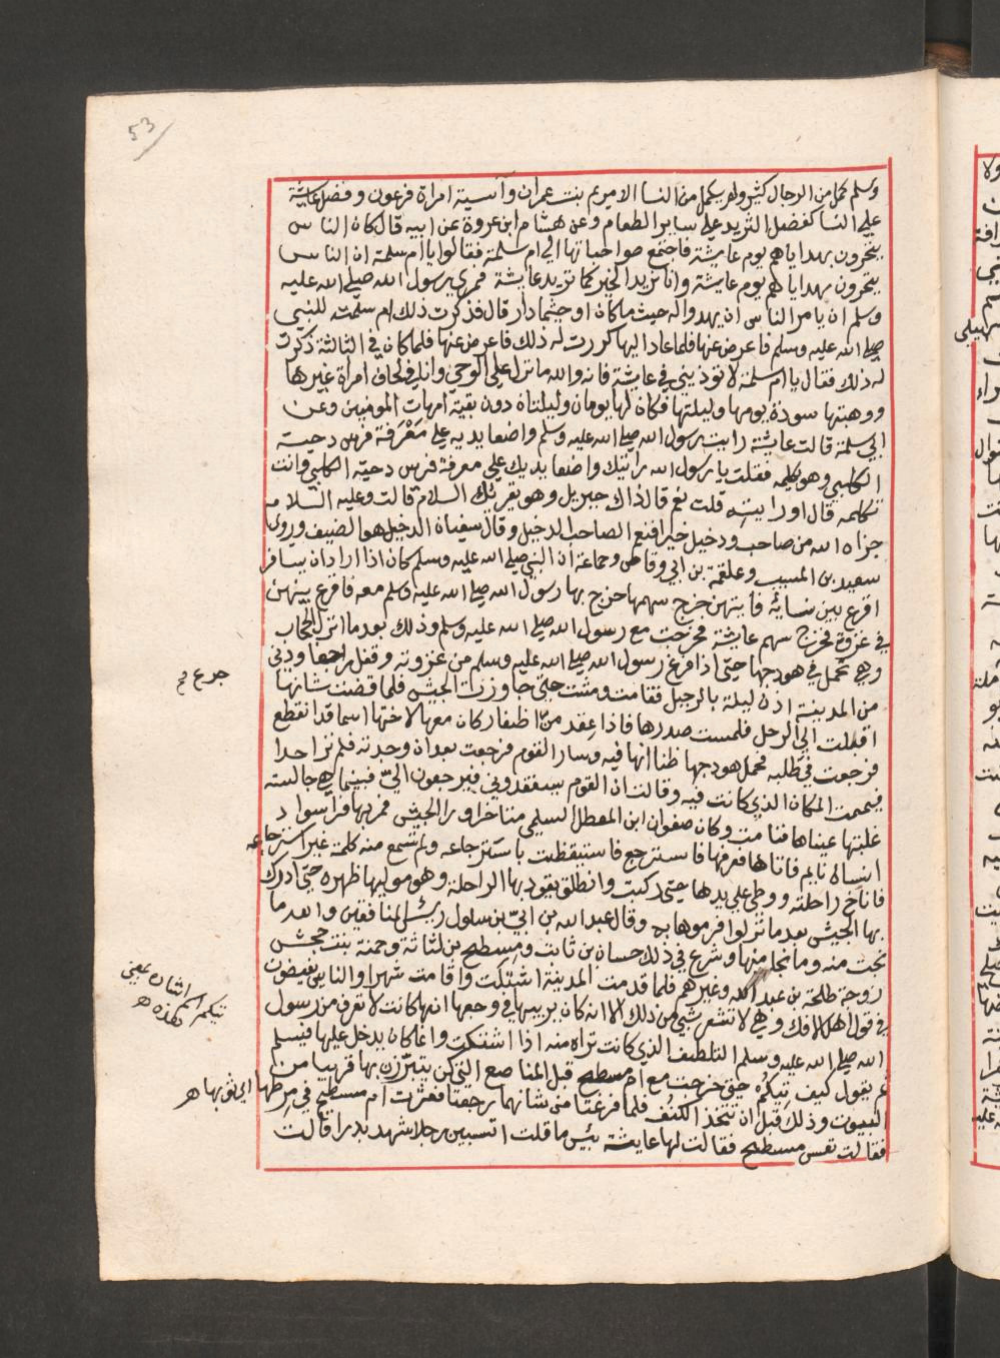 53
وسلم كمل من الرجال كثير ولم يكمل من النسا الا مريم بنت عمران وآسية امراة فرعون وفضل عايشة
علي النسا كفضل الثريد علي ساير الطعام وعن هشام ابن عروة عن ابيه قال كان الناس
يتحرون بهداياهم يوم عايشة فاجتمع صواحباتها الي ام سلمة فقالوا يا ام سلمة ان الناس
يتحرون بهداياهم يوم عايشة وانا نريد الخير كما تريد عايشة فمري رسول الله صلي الله عليه
وسلم ان يامر الناس ان يهدوا له حيث ما كان او حيثما دار قال فذكرت ذلك ام سلمة للنبي
صلي الله عليه وسلم فاعرض عنها فلما عاد اليها كررت له ذلك فاعرض عنها فلما كان في الثالثة ذكرت
له ذلك فقال يا ام سلمة لا توذيني في عايشة فانه والله ما نزل علي الوحي وانا في لحاف امراة غيرها
ووهبتها سودة يومها وليلتها فكان لها يومان وليلتان دون بقية امهات المومنين وعن
ابي سلمة قالت عايشة رايت رسول الله صلي الله عليه وسلم واضعا يديه علي معرفة فرس دحية
الكلبي وهو يكلمه فقلت يا رسول الله رايتك واضعا يديك علي معرفة فرس دحية الكلبي وانت
تكلمه قال اورايتيه قلت نعم قال ذاك جبريل وهو يقريك السلام قالت وعليه السلام
جزاه الله من صاحب ودخيل خيرا فنعم الصاحب الدخيل وقال سفيان الدخيل هو الضيف وروي
سعيد بن المسيب وعلقمة بن ابي وقاص وجماعة ان النبي صلي الله عليه وسلم كان اذا اراد ان يسافر
اقرع بين نسائه فايتهن خرج سهمها خرج بها رسول الله صلي الله عليه وسلم معه فاقرع بينهن
في غزوة فخرج سهم عايشة فخرجت مع رسول الله صلي الله عليه وسلم وذلك بعد ما انزل الحجاب
وهي تحمل في هودجها حتي اذا فرغ رسول الله صلي الله عليه وسلم من غزوته وقفل راجعا ودني
من المدينة اذن ليلة بالرحيل فقامت ومشت حتي جاوزت الجيش فلما قضت شانها
اقبلت الي الرحل فلمست صدرها فاذا عقد من اظفار كان معها لاختها اسما قد انقطع
فرجعت في طلبه فحمل هودجها ظنا انها فيه وسار القوم فرجعت بعد ان وجدته فلم تر احدا
فيممت المكان الذي كانت فيه وقالت ان القوم سيفقدوني فيرجعون الي فبينما هي جالسة
غلبتها عيناها فنامت وكان صفوان ابن المعطل السلمي متاخرا ورا الجيش فمر بها فرا سواد
انسان نايم فاتاها فعرفها فاسترجع فاستيقظت باسترجاعه ولم تسمع منه كلمة غير استرجاعه
فاناخ راحلته ووطي علي يدها حتي ركبت وانطلق يقود بها الراحلة وهو موليها ظهره حتي ادرك
بها الجيش بعد ما نزلوا فرموها به وقال عبد الله بن ابي بن سلول ريس المنافقين والله ما
نجت منه وما نجا منها وشرع في ذلك حسان بن ثابت ومسطح بن اثاثة وحمنة بنت جحش
زوجة طلحة بن عبد الله وغيرهم فلما قدمت المدينة اشتكت واقامت شهرا والناس يفيضون
في قول اهل الافك وهي لا تشعر بشي من ذلك الا انه كان يريبها في وجعها انها كانت لا تعرف من رسول
الله صلي الله عليه وسلم التلطيف الذي كانت تراه منه اذا اشتكت وانما كان يدخل عليها فيسلم
ثم يقول كيف تيكم حتي خرجت مع ام مسطح قبل المناصع التي كن يتبرزن بها قريبا من
البيوت وذلك قبل ان تتخذ الكنف فلما فرغتا من شانهما رجعتا فعثرت ام مسطح في مرطها
فقالت تعس مسطح فقالت لها عايشة بئس ما قلت اتسبين رجلا شهد بدرا قالت
تيكم اسم اشارة بمعني
هذه ه
اي ثوبها ه